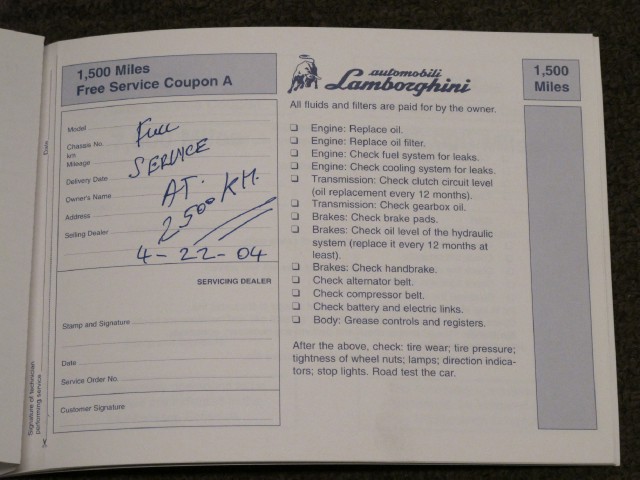 1,500 Miles
Free Service Coupon A
Model
Chassis No.
km
Mileage
Delivery Date
Owner's Name
Address
Selling Dealer
Full
SERVICE
AT.
2500 KM.
4-22-04
SERVICING DEALER
Stamp and Signature
Date
Service Order No.
Customer Signature
Date
Signature of technician
performing service
automobili
Lamborghini
All fluids and filters are paid for by the owner.
❏ Engine: Replace oil.
❏ Engine: Replace oil filter.
❏ Engine: Check fuel system for leaks.
❏ Engine: Check cooling system for leaks.
❏ Transmission: Check clutch circuit level
(oil replacement every 12 months).
❏ Transmission: Check gearbox oil.
❏ Brakes: Check brake pads.
❏ Brakes: Check oil level of the hydraulic
system (replace it every 12 months at
least).
❏ Brakes: Check handbrake.
❏ Check alternator belt.
❏ Check compressor belt.
❏ Check battery and electric links.
❏ Body: Grease controls and registers.
After the above, check: tire wear; tire pressure;
tightness of wheel nuts; lamps; direction indica-
tors; stop lights. Road test the car.
1,500
Miles